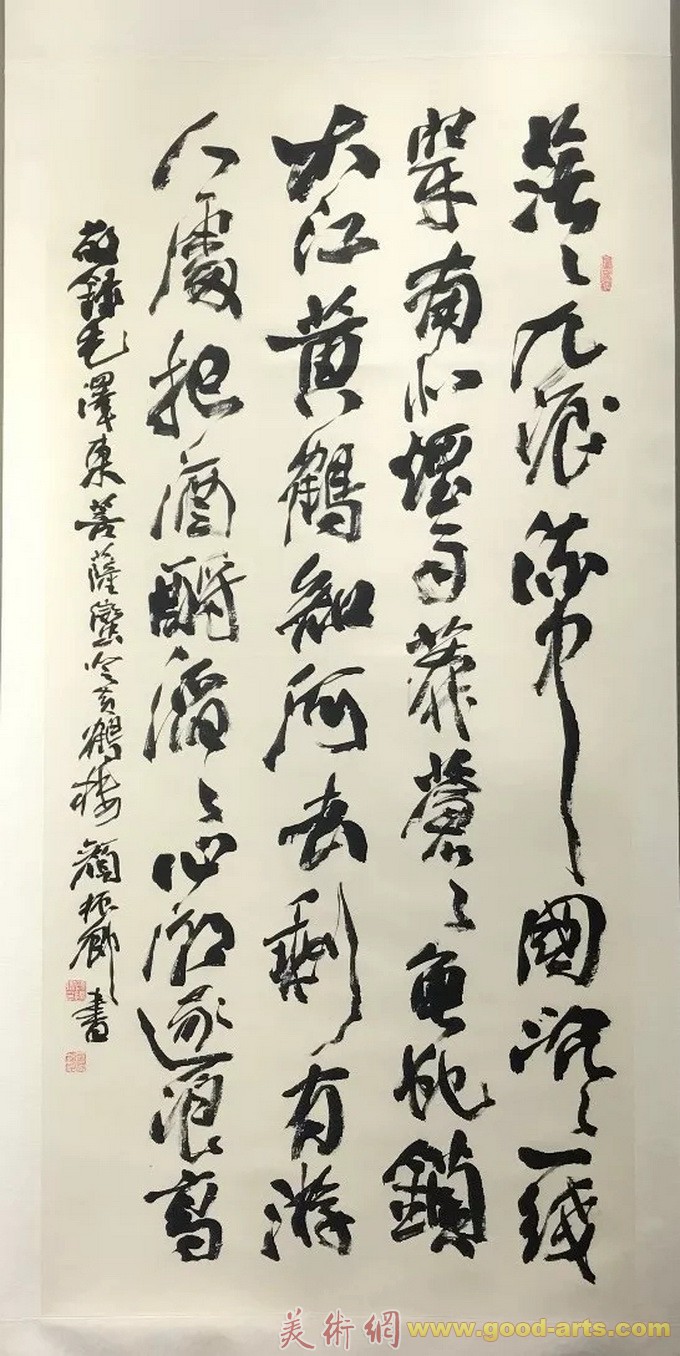 茫々九派流中國沉々一线
穿南北煙雨莽蒼々龜蛇鎖
大江黄鶴知何去剩有游
人處把酒酹滔々心潮逐浪高
敬錄毛澤東菩薩蠻黄鶴樓 顏振卿書
美術網 www.good-arts.com